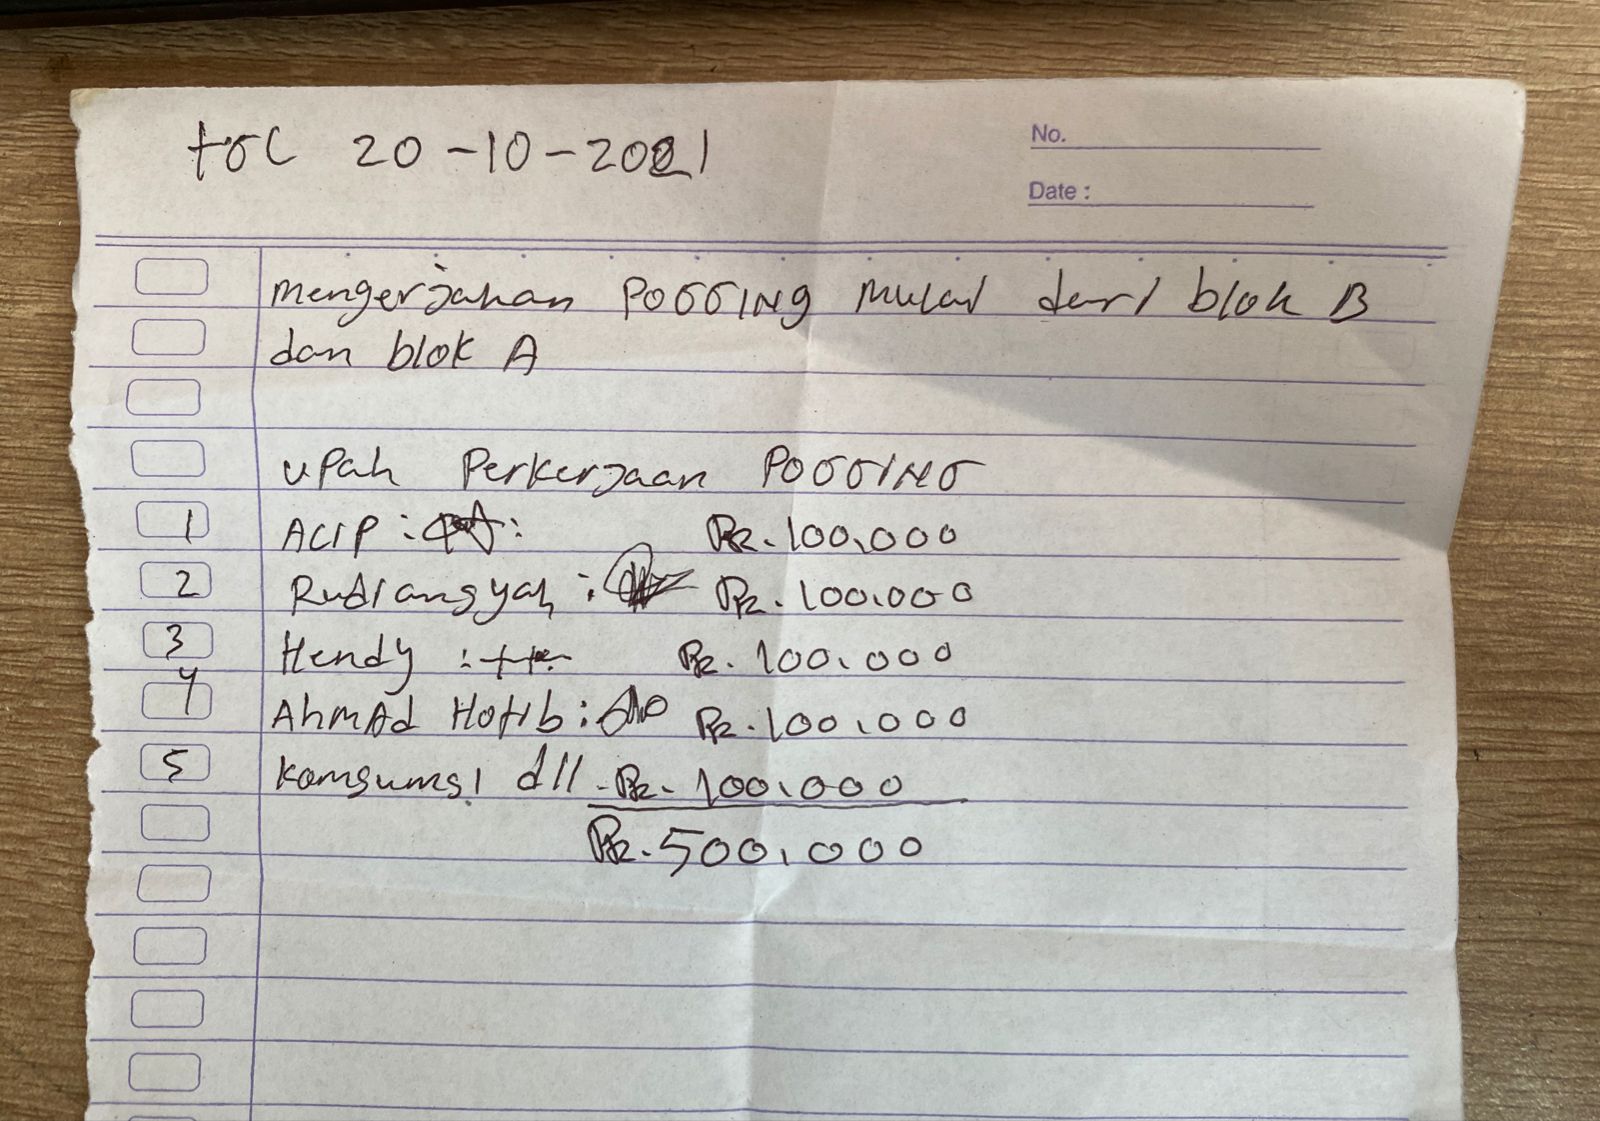 tgl 20-10-2021
No.
Date :
mengerjakan POGGING mulai dari blok B
dan blok A
upah Perkerjaan POGGING
1 ACIP : Rp. 100.000
2 Rudiangsyah : Rp. 100.000
3 Hendy : Rp. 100.000
4 Ahmad Hotib : Rp. 100.000
5 Komsumsi dll - Rp. 100.000
Rp. 500.000